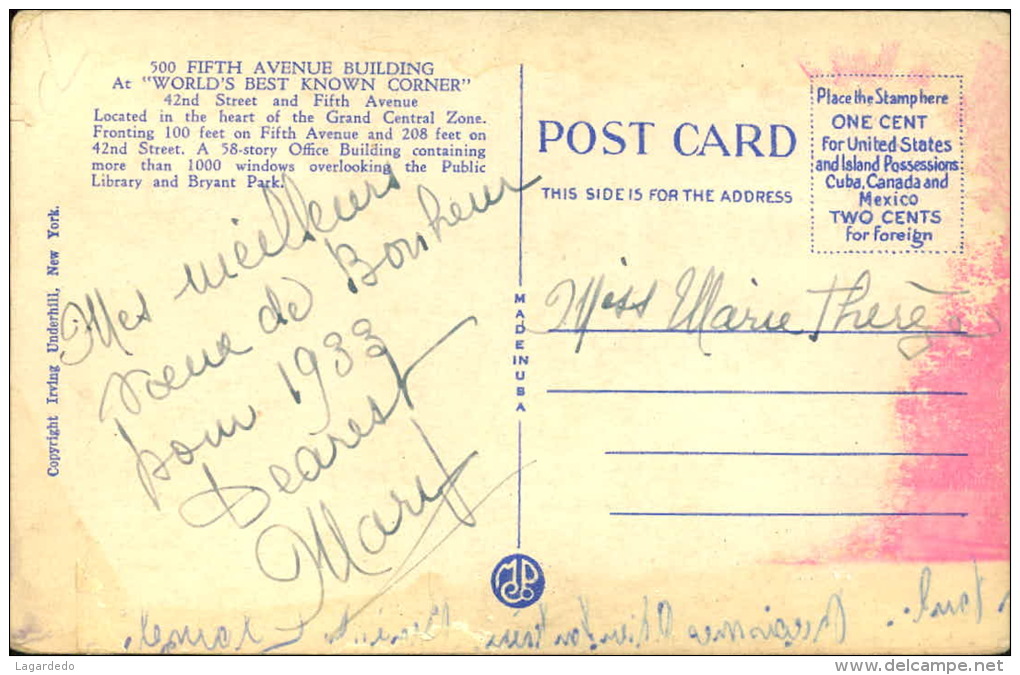 500 FIFTH AVENUE BUILDING
At "WORLD'S BEST KNOWN CORNER"
42nd Street and Fifth Avenue
Located in the heart of the Grand Central Zone.
Fronting 100 feet on Fifth Avenue and 208 feet on
42nd Street. A 58-story Office Building containing
more than 1000 windows overlooking the Public
Library and Bryant Park.
Copyright Irving Underhill, New York.
Mes meilleurs
vœux de Bonheur
pour 1933
Dearest
Mary
MADE IN USA
POST CARD
THIS SIDE IS FOR THE ADDRESS
Place the Stamp here
ONE CENT
for United States
and Island Possessions
Cuba, Canada and
Mexico
TWO CENTS
for Foreign
Miss Marie Thérèse
Lagardedo
www.delcampe.net